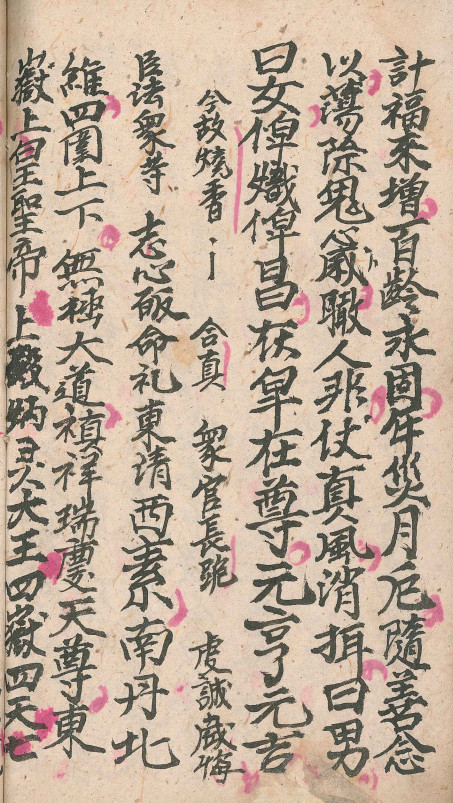 計福来增百齡永固年災月厄隨善念
以蕩除鬼瞰人非仗真風消弭曰男
曰女俾熾俾昌在卑在尊元亨元吉
今故燒香 合真 衆官長跪 虔誠懺悔
臣法衆等 志心皈命礼東靖西素南丹北
維四圍上下 無極大道禎祥瑞慶天尊東
嶽上皇聖帝上殿炳灵大王四嶽四天